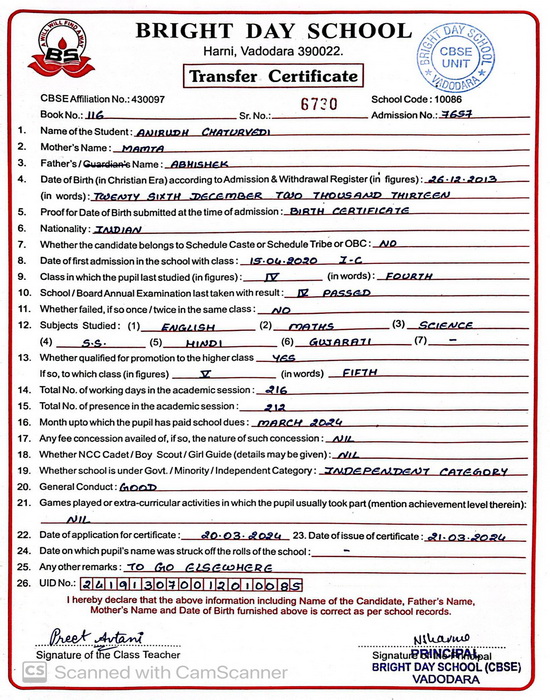 A WILL WILL FIND A WAY
BS
BRIGHT DAY SCHOOL
Harni, Vadodara 390022.
Transfer Certificate
BRIGHT DAY SCHOOL
CBSE
UNIT
VADODARA
CBSE Affiliation No.: 430097
6730
School Code : 10086
Book No.: 116
Sr. No.:
Admission No.: 7657
1. Name of the Student : ANIRUDH CHATURVEDI
2. Mother's Name : MAMTA
3. Father's / Guardian's Name : ABHISHEK
4. Date of Birth (in Christian Era) according to Admission & Withdrawal Register (in figures) : 26.12.2013
(in words) : TWENTY SIXTH DECEMBER TWO THOUSAND THIRTEEN
5. Proof for Date of Birth submitted at the time of admission : BIRTH CERTIFICATE
6. Nationality : INDIAN
7. Whether the candidate belongs to Schedule Caste or Schedule Tribe or OBC : NO
8. Date of first admission in the school with class : 15.04.2020 I-C
9. Class in which the pupil last studied (in figures) : IV (in words) : FOURTH
10. School / Board Annual Examination last taken with result : IV PASSED
11. Whether failed, if so once / twice in the same class : NO
12. Subjects Studied : (1) ENGLISH (2) MATHS (3) SCIENCE
(4) S.S. (5) HINDI (6) GUJARATI (7) -
13. Whether qualified for promotion to the higher class YES
If so, to which class (in figures) V (in words) FIFTH
14. Total No. of working days in the academic session : 216
15. Total No. of presence in the academic session : 212
16. Month upto which the pupil has paid school dues : MARCH 2024
17. Any fee concession availed of, if so, the nature of such concession : NIL
18. Whether NCC Cadet / Boy Scout / Girl Guide (details may be given) : NIL
19. Whether school is under Govt. / Minority / Independent Category : INDEPENDENT CATEGORY
20. General Conduct : GOOD
21. Games played or extra-curricular activities in which the pupil usually took part (mention achievement level therein) :
NIL
22. Date of application for certificate : 20.03.2024 23. Date of issue of certificate : 21.03.2024
24. Date on which pupil's name was struck off the rolls of the school : -
25. Any other remarks : TO GO ELSEWHERE
26. UID No.: 241913070012010085
I hereby declare that the above information including Name of the Candidate, Father's Name,
Mother's Name and Date of Birth furnished above is correct as per school records.
Preet Avtani
Signature of the Class Teacher
Signature of the Principal
PRINCIPAL
BRIGHT DAY SCHOOL (CBSE)
VADODARA
CS Scanned with CamScanner